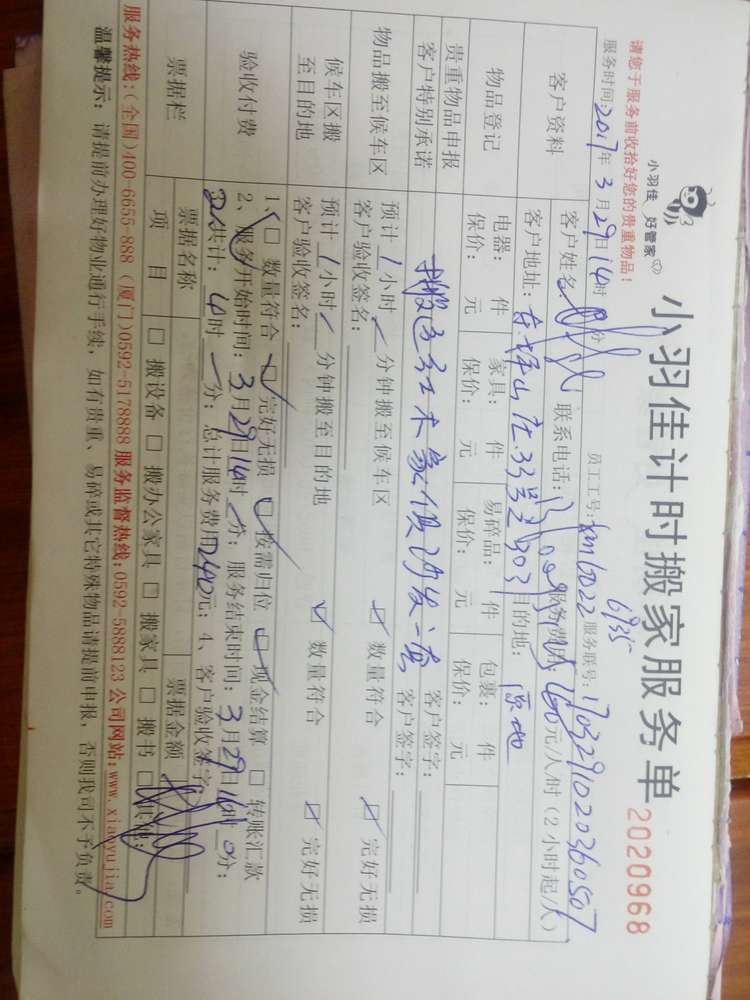 小羽佳 好管家
小羽佳计时搬家服务单
2020968
请您于服务前收拾好您的贵重物品！
员工工号： 6935 服务联号：170329102036050
服务时间:2017年3月29日14时 分
客户资料
客户姓名： 联系电话： 服务费用：160元/人/时（2小时起/人）
客户地址： 33号之903 目的地：原地
物品登记
电器： 件 家具： 件 易碎品： 件 包裹： 件
保价： 元 保价： 元 保价： 元 保价： 元
贵重物品申报
客户特别承诺
搬运红木家俱沙发一套
客户签字：
客户签字：
物品搬至候车区
预计1小时/分钟搬至候车区 ☑ 数量符合 ☑ 完好无损
客户验收签名：
候车区搬
至目的地
预计1小时/分钟搬至目的地 ☑ 数量符合 ☑ 完好无损
客户验收签名：
验收付费
1、☑ 数量符合 ☑ 完好无损 ☑ 按需归位 ☑ 现金结算 □ 转账汇款
2、服务开始时间：3月29日14时/分；服务结束时间：3月29日16时0分；
共计：4时/分；总计服务费用 元；4、客户验收签字
票据栏
票据名称 票据金额
项 目 □ 搬设备 □ 搬办公家具 □ 搬家具 □ 搬书 □ 其他：
服务热线:(全国)400-6655-888 (厦门)0592-5178888 服务监督热线:0592-5888123 公司网站:www.xiaoyujia.com
温馨提示：请提前办理好物业通行手续，如有贵重、易碎或其它特殊物品请提前申报，否则我司不予负责。